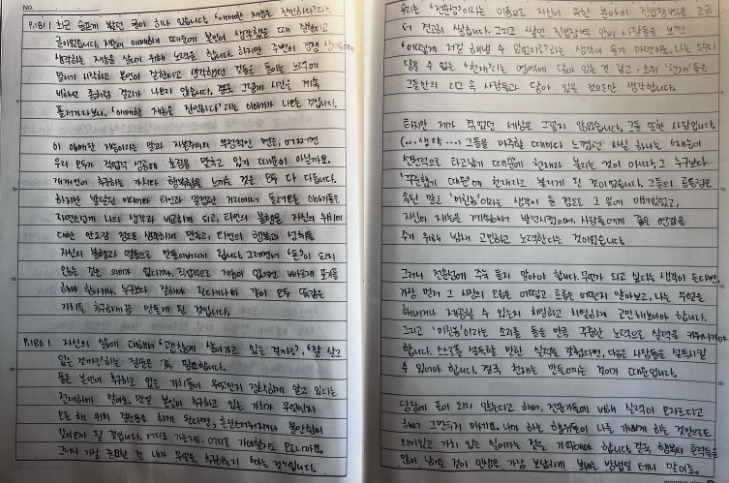 No.
P.181 최근 슬프게 봤던 글이 하나 있습니다. '애매한 재능은 잔인하다'라는
글이었습니다. 재능이 애매하기 때문에 본인이 생각했을 때 잘한다고
생각하는 재능을 살리기 위해 노력을 합니다. 하지만 주변의 경쟁
시작하고 본인이 잘한다고 생각하였던 것들은 들이는 노력에
비하면 결과가 나오지 않습니다. 결국 그렇게 시간은 계속
흘러가다보니, '애매한 재능은 잔인하다'라는 이야기가 나오는 것입니다.
이 애매한 재능이라는 말과 자본주의의 부정적인 면은, 어쩌면
우리 모두가 직업적 성공에 초점을 맞추고 있기 때문이 아닐까요.
개개인이 추구하는 가치와 행복함을 느끼는 것은 모두 다 다릅니다.
하지만 발달된 미디어와 타인과 밀접한 거리에서 들려오는 이야기들은
자연스럽게 나의 생각과 비교하게 되고, 타인의 불행은 자신의 위치에
대한 안도감 정도로 생각하게 만들고, 타인의 행복과 성취를
자신의 불행과 열등으로 만들어버리게 됩니다. 그러면서 '돈'이 되지
않는 것은 의미가 없다거나, 직업적으로 재능이 있으면 빠르게 무기를
해야 한다거나, 누구보다 잘해야 된다거나와 같이 모두 똑같은
가치를 추구하게끔 만들게 된 것입니다.
P.186 자신의 일에 대해서 '괜찮게 살아가고 있는 걸까요?', '잘 살고
있는 걸까요?'하는 질문은 꼭 필요합니다.
물론 본인이 추구하고 있는 가치들이 무엇인지 정확하게 알고 있다는
전제하에 말이죠. 만일 본인이 추구하고 있는 가치가 무엇인지
모른 채 위의 질문들을 하게 된다면, 혼란스러워지거나 불안함이
될 것입니다. 어디로 가는지도, 어디로 가야할지도 모르니까요.
그러니 가장 중요한 건 내가 무엇을 추구하는지 아는 것입니다.
우리는 '전문성'이라는 이름으로 자신이 속한 분야의 진입장벽을 조금
더 견고히 쌓습니다. 그리고 쌓인 진입장벽 안의 사람들을 보면
'어떻게 저걸 해낼 수 있었지?'하는 생각이 들기 마련이죠. 나는 도저히
닿을 수 없는 '천재'라는 영역에 닿아 있는 것 같고, 소위 '천재'들은
그들만의 리그 속 사람들과 닿아 있을 것으로만 생각합니다.
하지만 제가 직면했던 세상은 그렇지 않았습니다. 그들 또한 사람입니다.
(...생략...) 그들을 마주할 때마다 느꼈던 사실 하나는 천재들이
선천적으로 타고났기 때문에 천재라고 불리는 것이 아니라, 그 누구보다
'꾸준했기 때문'에 천재라고 불리게 된 것이었습니다. 그들의 공통점은
속된 말로 '미친놈'이라는 생각이 들 정도로 그 일에 미쳐있었고,
자신의 재능을 계속해서 발전시켰으며, 사람들에게 좋은 영감을
주기 위해 밤새 고민하고 노력한다는 것이었습니다
그러니 전문성에 주눅 들지 말아야 합니다. 무언가 되고 싶다는 생각이 든다면,
가장 먼저 그 시장의 모습은 어떻고 흐름은 어떤지 알아보고, 나는 무엇을
해나가며 제공할 수 있는지 희망하고 치열하게 고민해보아야 합니다.
그리고 '미친놈'이라는 소리를 들을 만큼 꾸준한 노력으로 실력을 키워나가야
합니다. 스스로를 설득할 만한 실력을 갖췄다면, 다음은 사람들을 설득시킬
수 있어야 합니다. 결국 천재는 만들어지는 것이기 때문입니다.
당장에 돈이 되지 않는다고 해서, 전문가들에 비해 실력이 모자라다고
해서 그만두지 마세요. 내가 하는 행위들이 나를 기쁘게 하는 것만으로도
의미있고 가치 있는 일이라는 점을 기억해야 합니다. 결국 행복의 흔적들을
많이 남기는 것이 인생을 가장 보람차게 보내는 방법일 테니 말이죠.